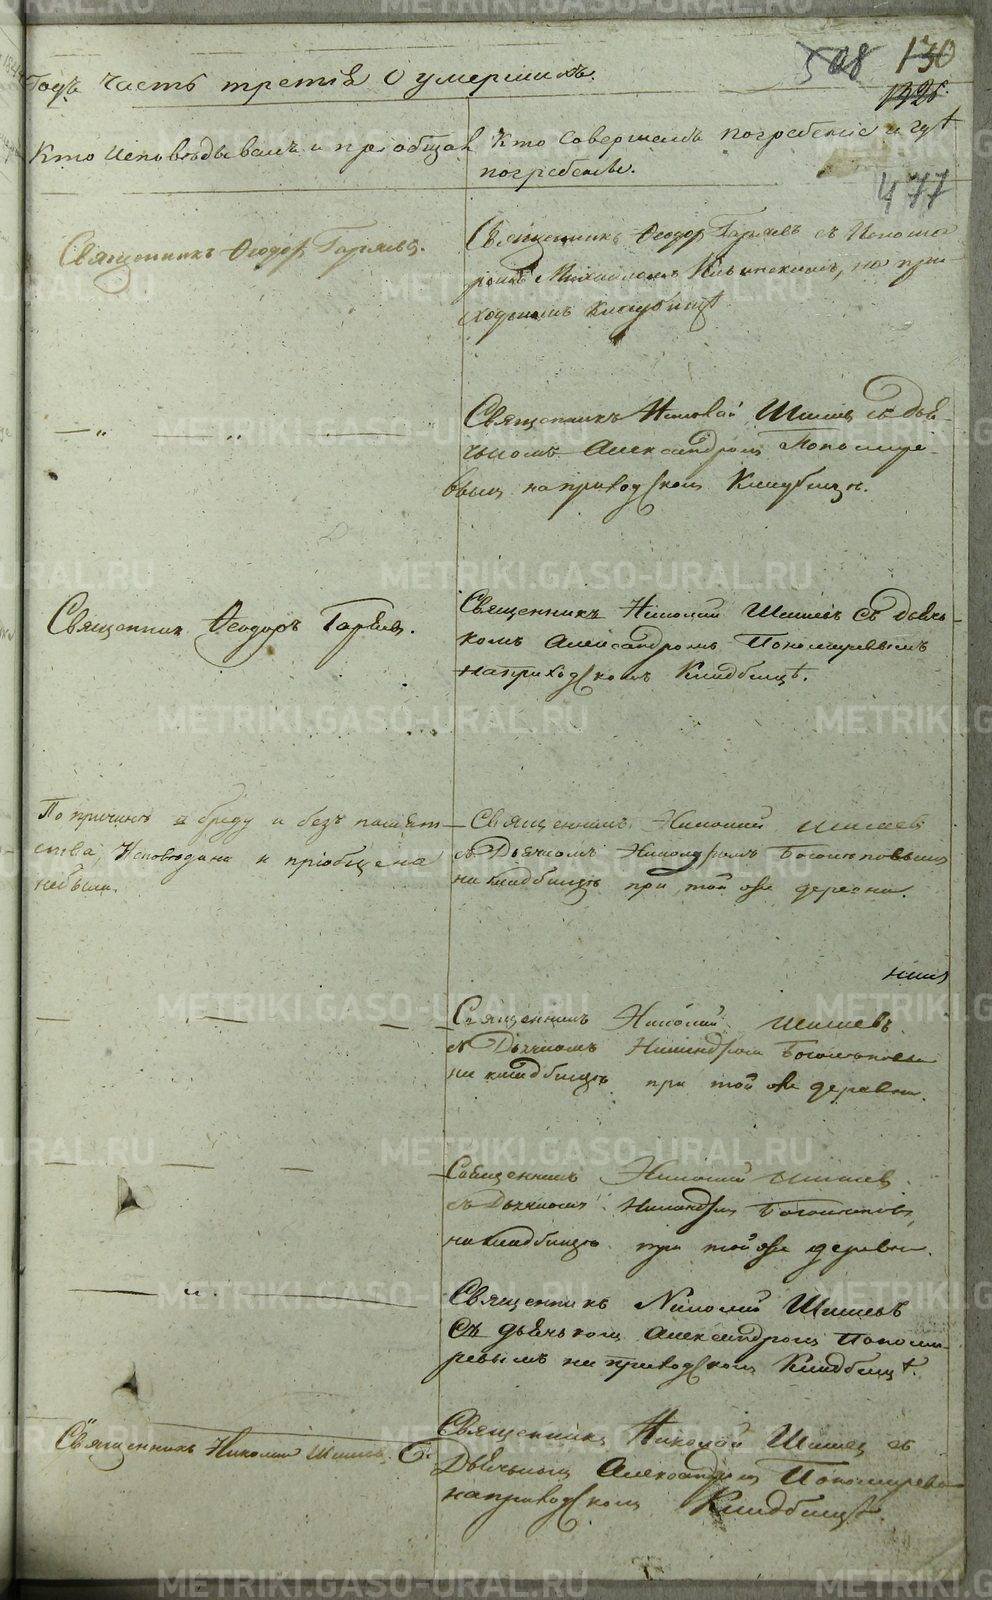 508 130
1326
477
Годъ часть третія о умершихъ.
Кто исповѣдывалъ и пріобщалъ
Кто совершалъ погребеніе и гдѣ
погребены.
Священникъ Ѳеодоръ
Священникъ Ѳеодоръ съ Понома
ремъ Михайломъ на при
ходскомъ кладбищѣ
— „ — „ —
Священникъ Николай Шишевъ съ дья
чкомъ Александромъ Пономаре
вымъ на приходскомъ Кладбищѣ.
Священникъ Ѳеодоръ
Священникъ Николай Шишевъ съ дьяч
комъ Александромъ Пономаревымъ
на приходскомъ Кладбищѣ.
По причинѣ бреду и безъ памят
ства, Исповѣдана и пріобщена
небыла.
Священникъ Николай Шишевъ
съ Дьячкомъ
на кладбищѣ при той же деревни.
— — —
Священникъ Николай Шишевъ
съ Дьячкомъ
на кладбищѣ при той же деревни.
— — —
Священникъ Николай Шишевъ
съ Дьячкомъ
на кладбищѣ при той же деревни.
— „ —
Священникъ Николай Шишевъ
съ дьячкомъ Александромъ Понома
ревымъ на приходскомъ Кладбищѣ.
Священникъ Николай Шишевъ
Священникъ Николай Шишевъ съ
Дьячкомъ Александромъ Пономаревымъ
на приходскомъ Кладбищѣ.
METRIKI.GASO-URAL.RU